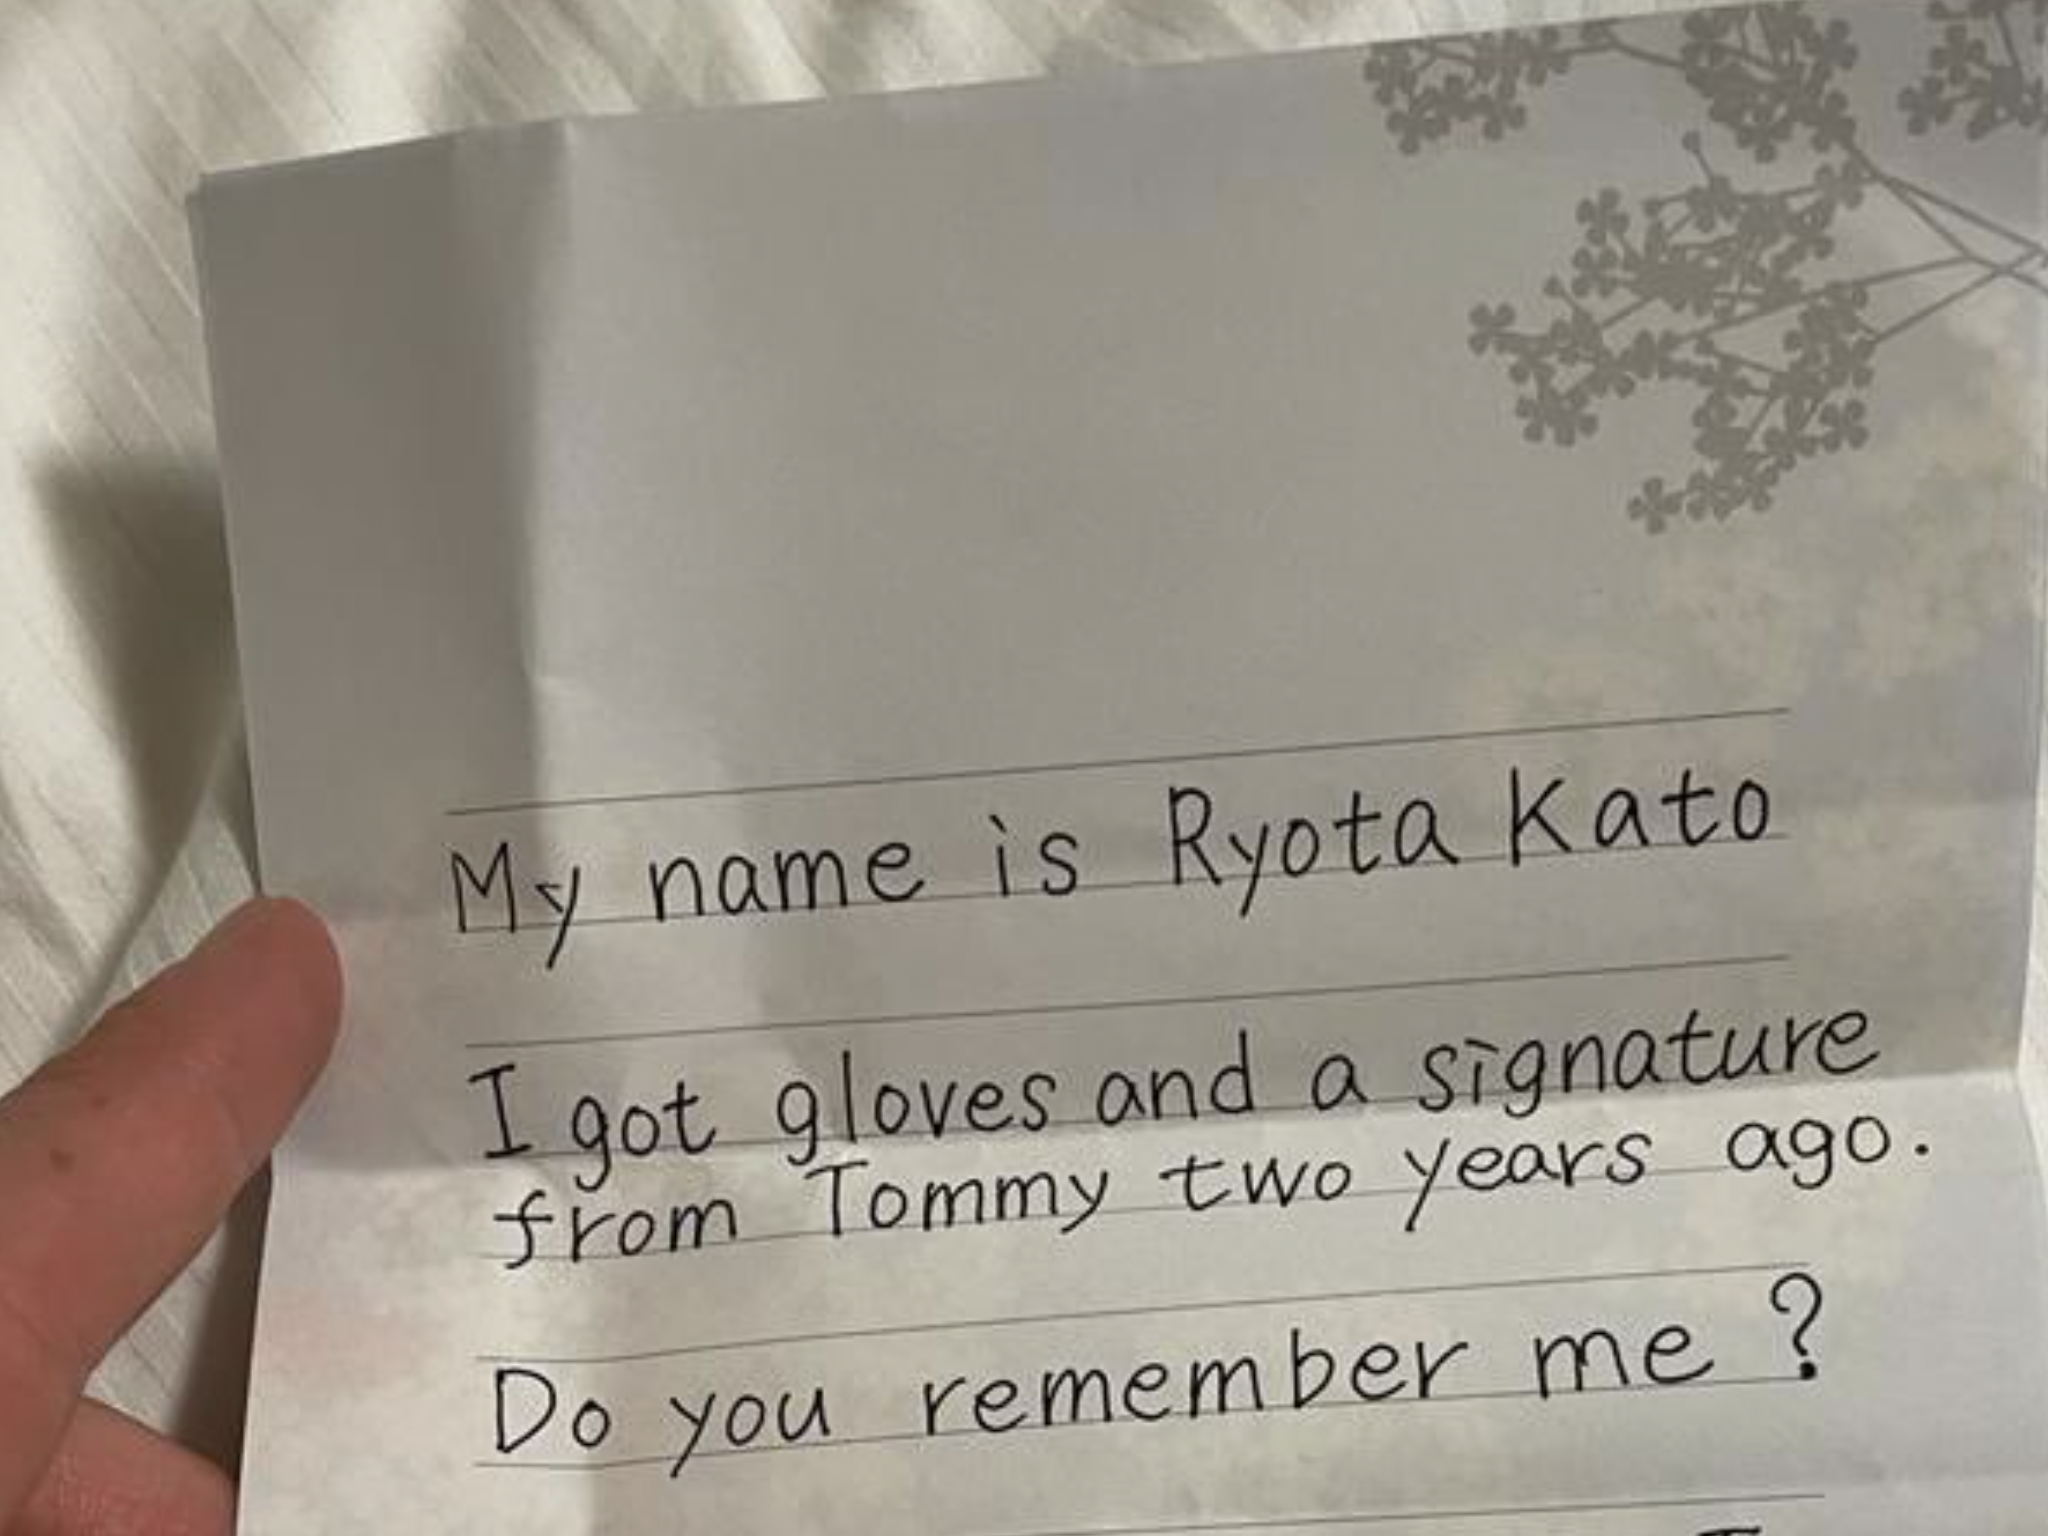 My name is Ryota Kato
I got gloves and a signature
from Tommy two years ago.
Do you remember me ?